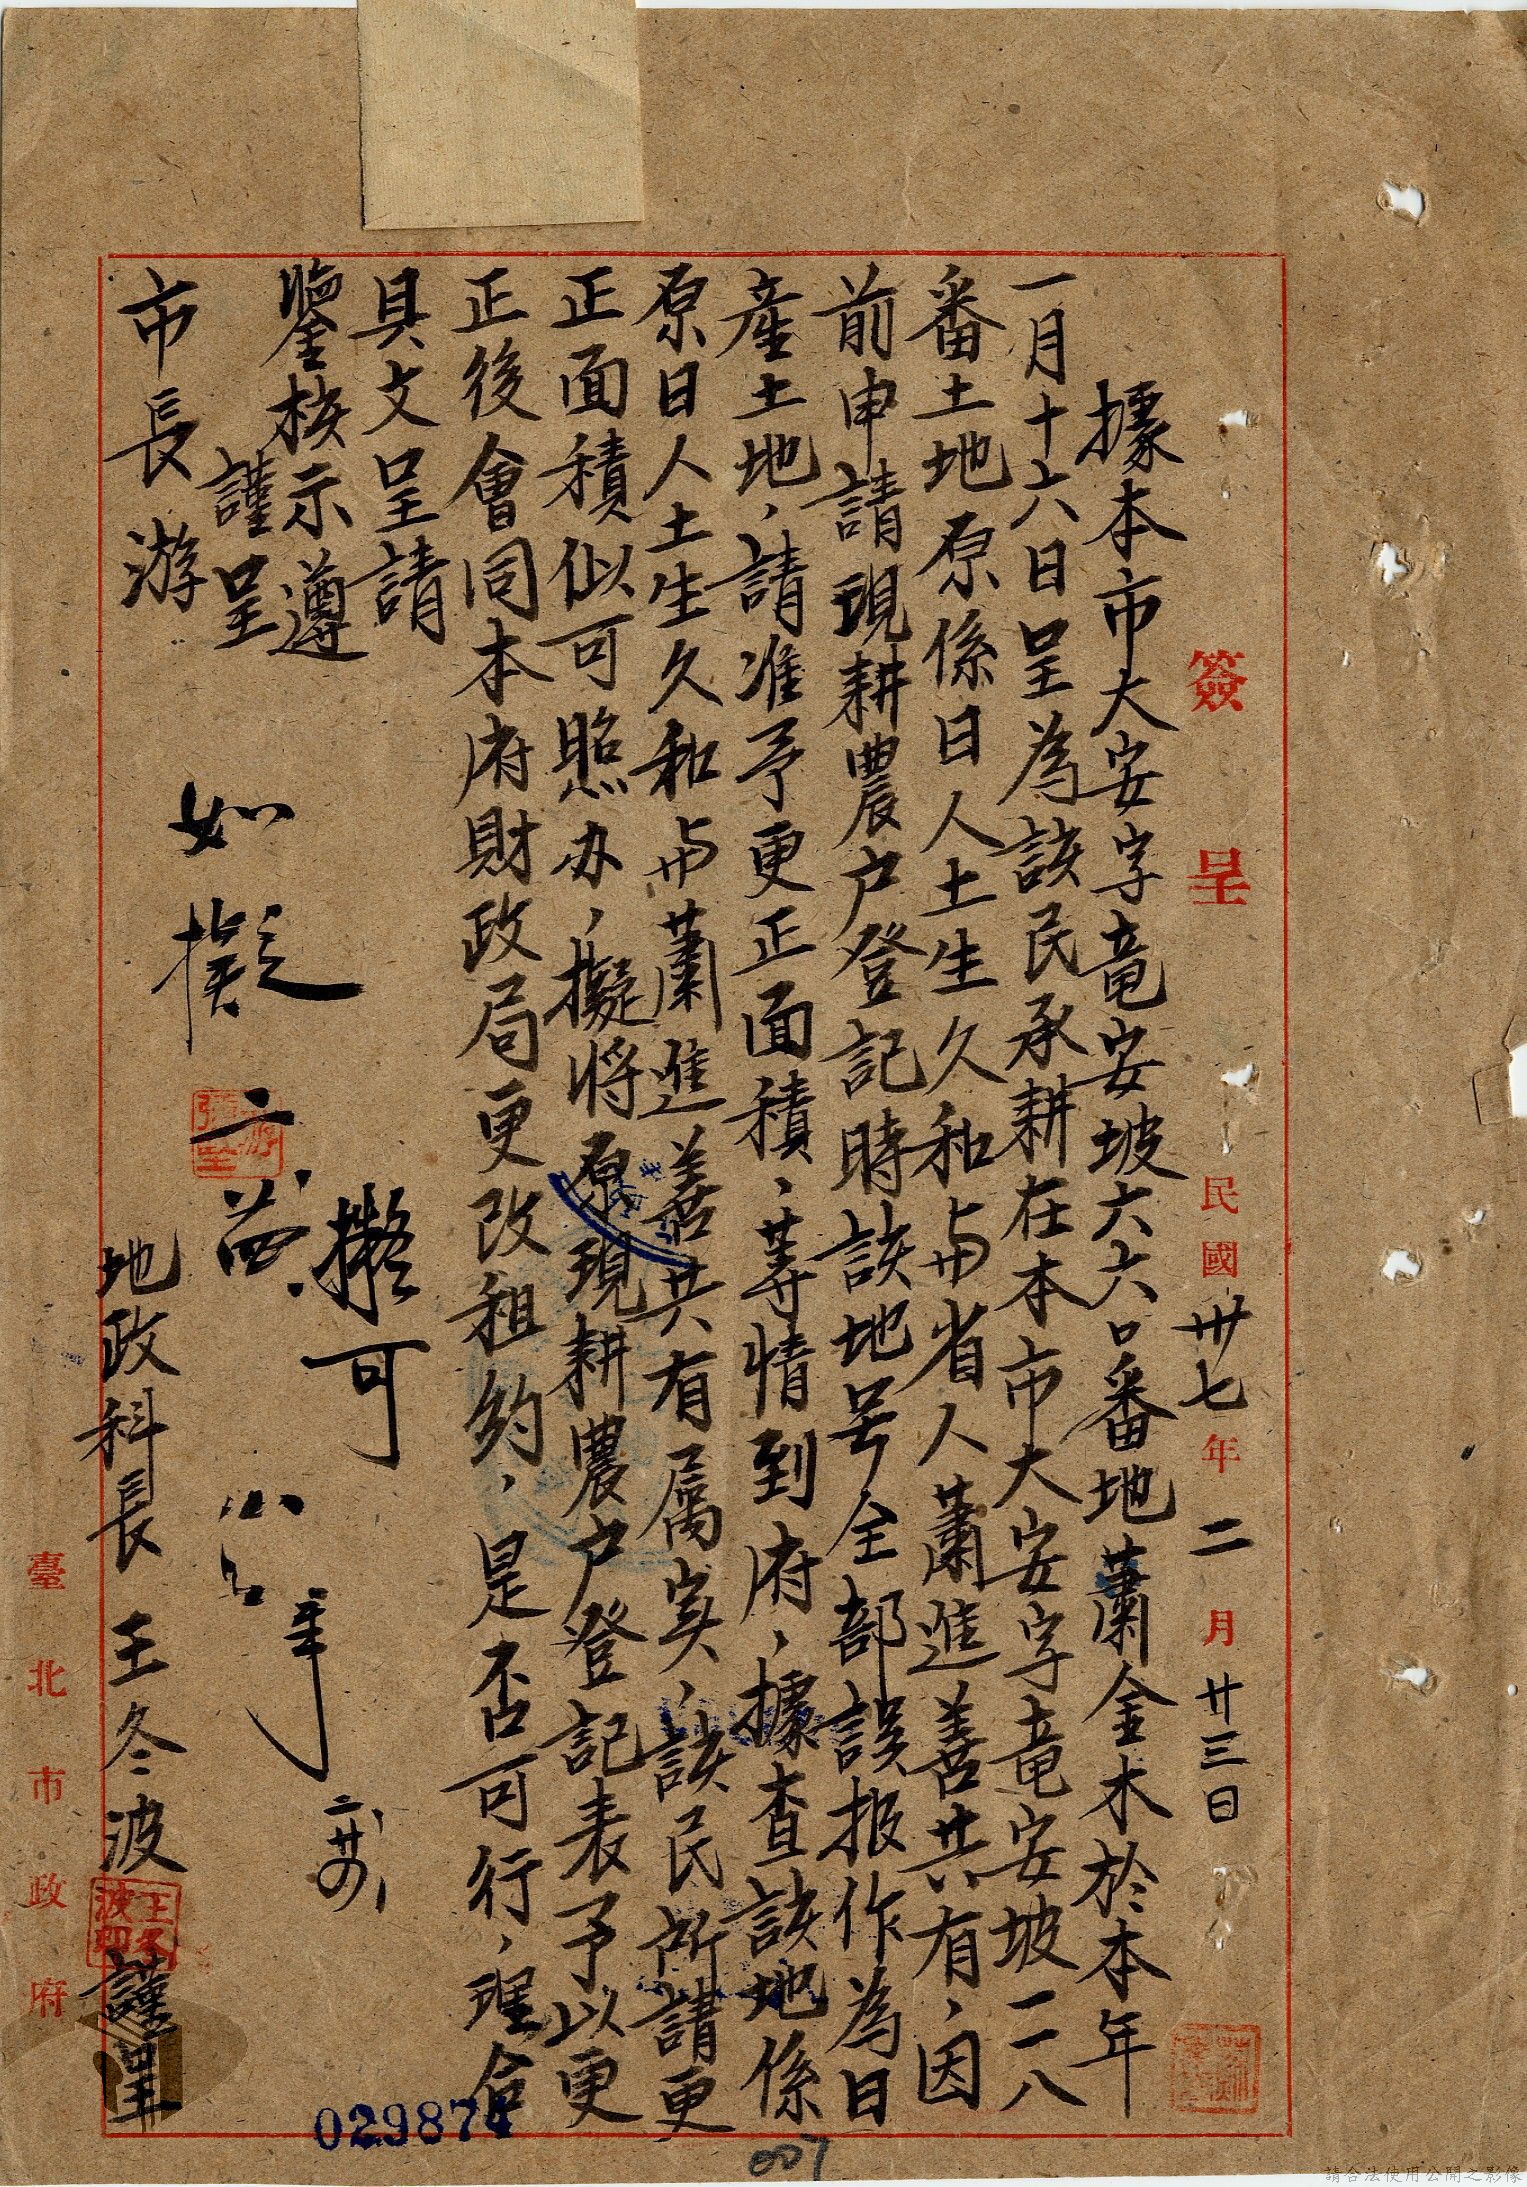 簽呈 民國卅七年二月廿三日
據本市大安字竜安坡六六口番地蕭金木於本年
一月十六日呈為該民承耕在本市大安字竜安坡一一八
番土地原係日人土生久和与省人蕭進善共有，因
前申請現耕農户登記時該地号全部誤报作為日
產土地，請准予更正面積、等情到府，據查該地係
原日人土生久和与蕭進善共有屬实，該民所請更
正面積似可照办，擬將原現耕農户登記表予以更
正後會同本府財政局更改租約，是否可行，理合
具文呈請
鑒核示遵
謹呈
市長游
地政科長王冬波謹呈
王冬波印
擬可
二廿四
如擬
臺北市政府
029874
007
請合法使用公開之影像